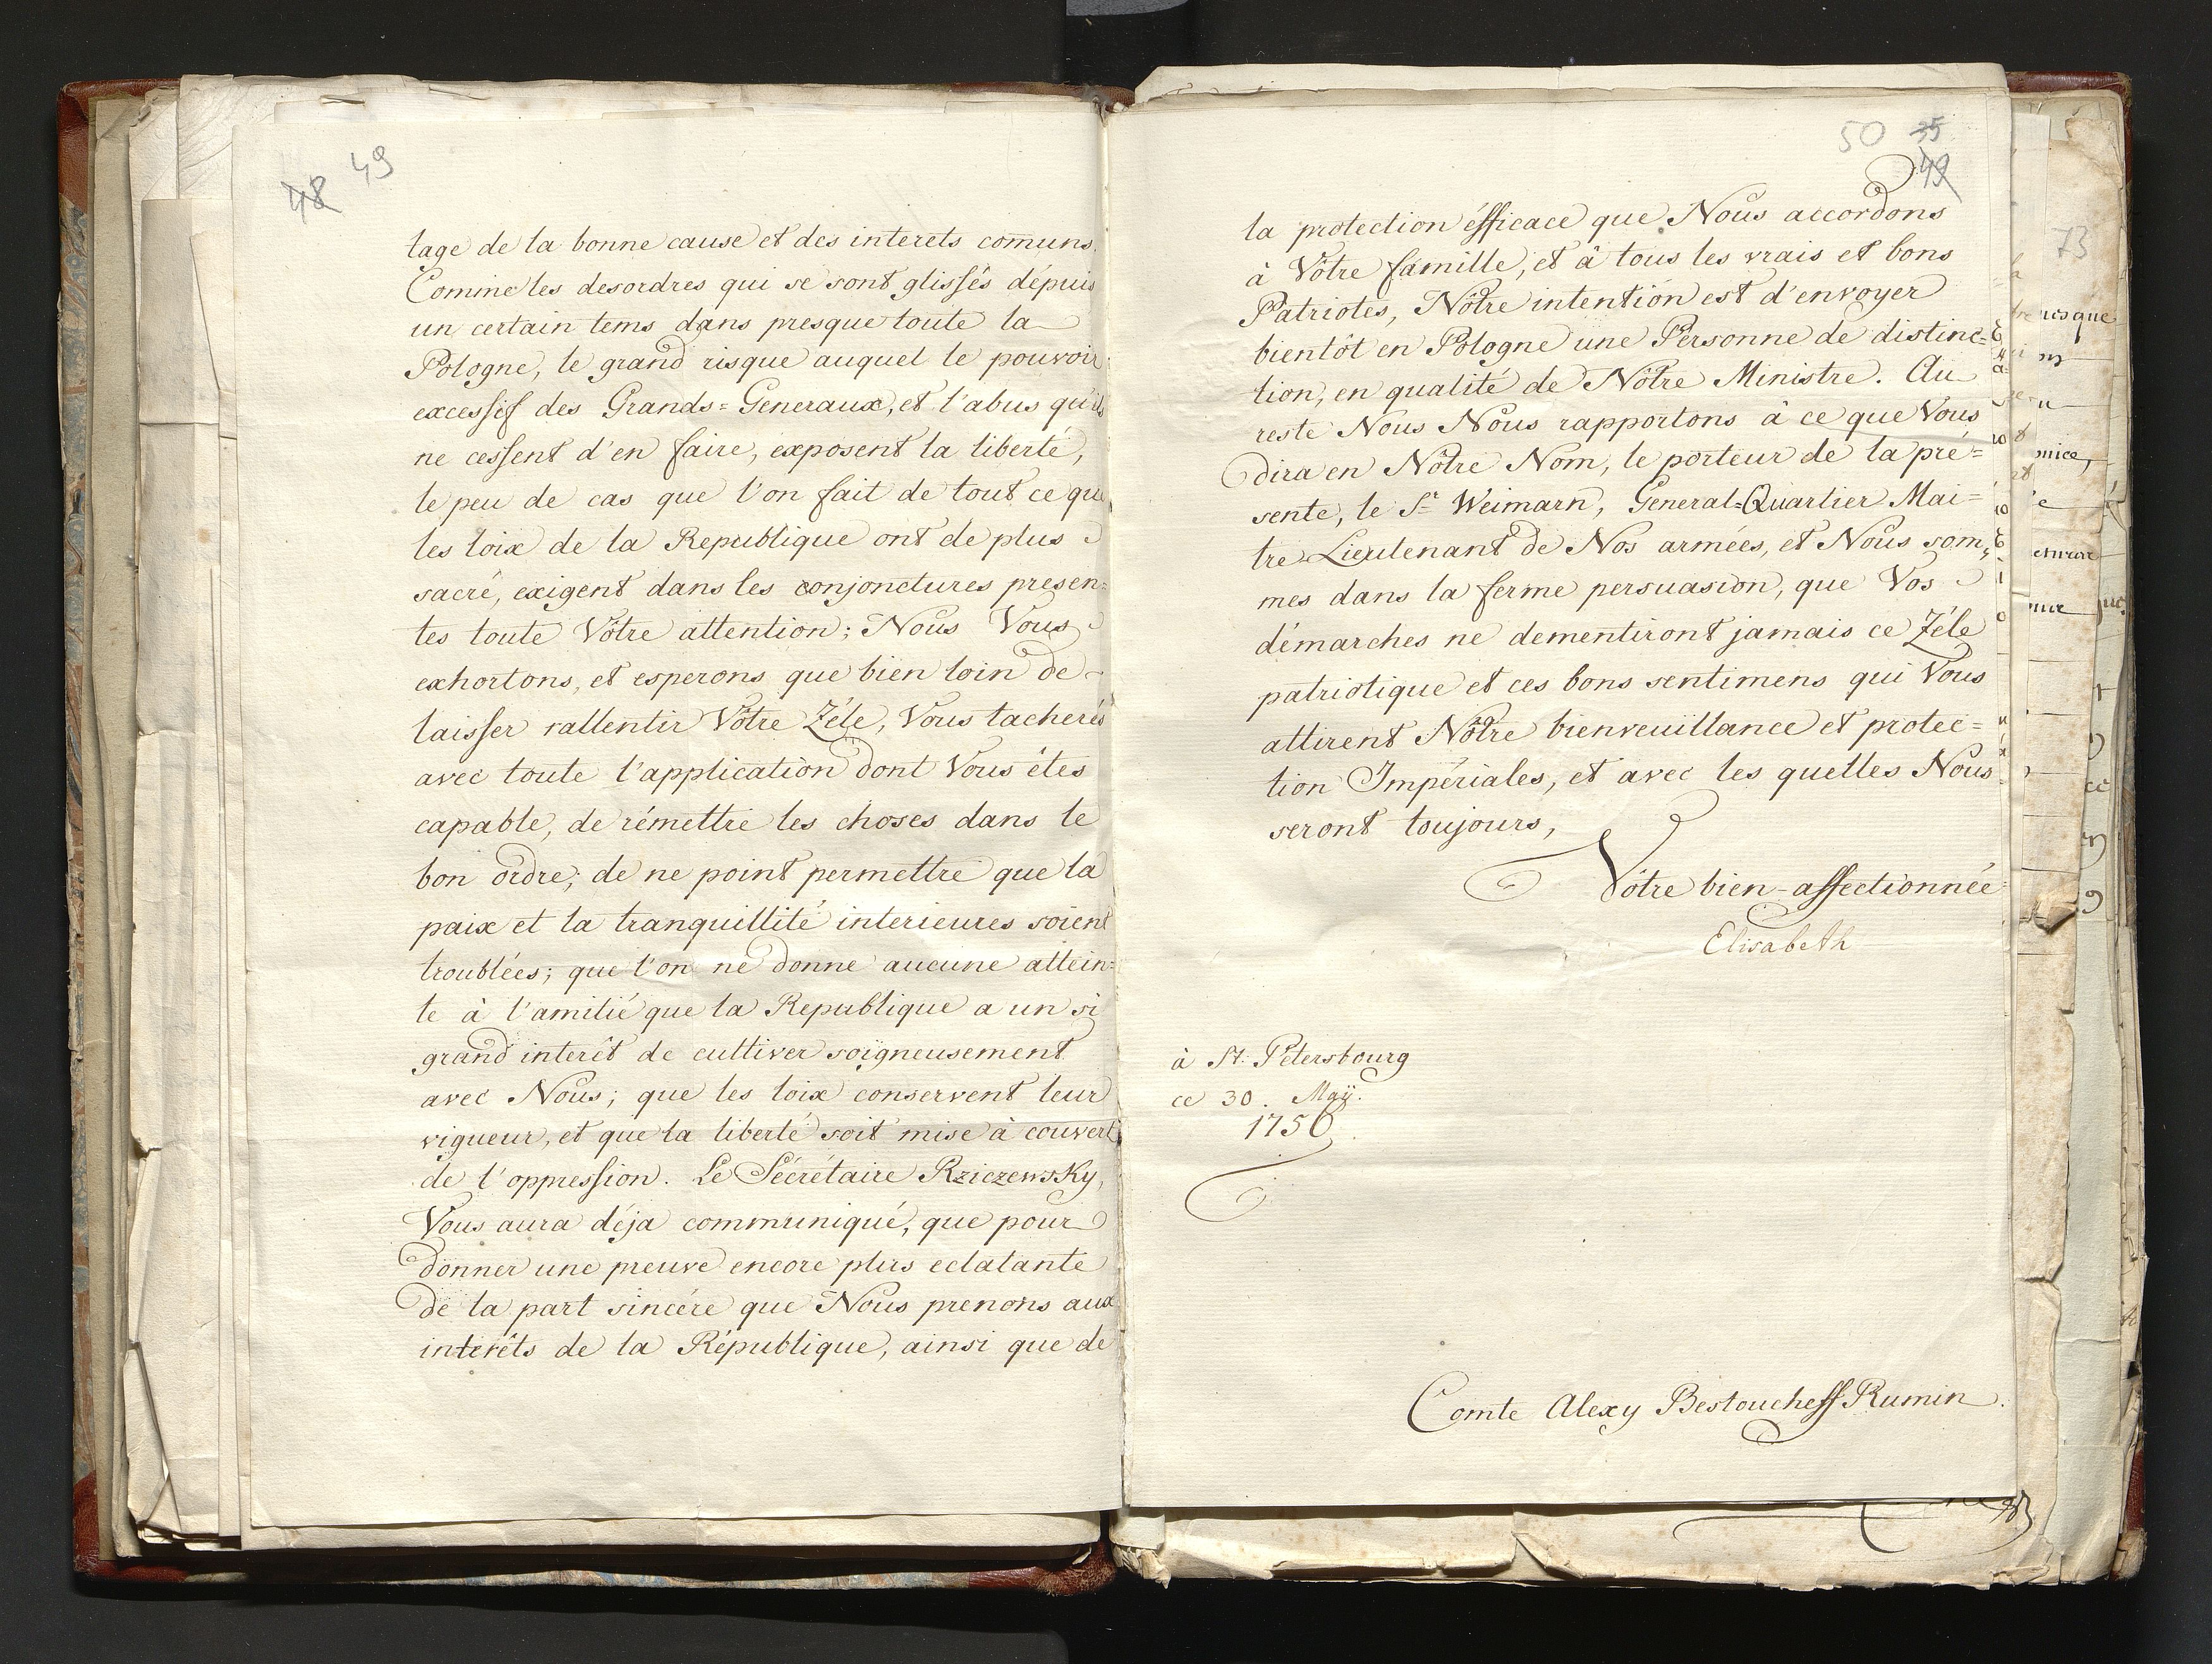 48 49
tage de la bonne cause et des interets comuns.
Comme les desordres qui se sont glissés dépuis
un certain tems dans presque toute la
Pologne, le grand risque auquel le pouvoir
excessif des Grands=Generaux, et l'abus qu'ils
ne cessent d'en faire, exposent la liberté,
le peu de cas que l'on fait de tout ce que
les loix de la Republique ont de plus
sacré, exigent dans les conjonctures presen=
tes toute Vôtre attention; Nous Vous
exhortons, et esperons que bien loin de
laisser rallentir Vôtre Zéle, Vous tacherés
avec toute l'application dont Vous êtes
capable, de rémettre les choses dans le
bon ordre; de ne point permettre que la
paix et la tranquillité interieures soient
troublées; que l'on ne donne aucune attein=
te à l'amitié que la Republique a un si
grand interêt de cultiver soigneusement
avec Nous; que les loix conservent leur
vigueur, et que la liberté soit mise à couvert
de l'oppression. Le Sécrétaire Rziczewsky,
Vous aura déja communiqué, que pour
donner une preuve encore plus eclatante
de la part sincére que Nous prenons aux
interêts de la République, ainsi que de
50 35
49
la protection éfficace que Nous accordons
à Vôtre famille, et à tous les vrais et bons
Patriotes, Nôtre intention est d'envoyer
bientôt en Pologne une Personne de distinc=
tion, en qualité de Nôtre Ministre. Au
reste Nous Nous rapportons à ce que Vous
dira en Nôtre Nom, le porteur de la pré=
sente, le Sr Weimarn, General=Quartier Mai=
tre Lieutenant de Nos armées, et Nous som=
mes dans la ferme persuasion, que Vos
démarches ne dementiront jamais ce Zéle
patriotique et ces bons sentimens qui Vous
attirent Nôtre bienveuillance et protec=
tion Impériales, et avec les quelles Nous
seront toujours,
Vôtre bien-affectionnée
Elisabeth
à St: Pétersbourg
ce 30. Maÿ.
1756
Comte Alexy Bestoucheff Rumin.
73